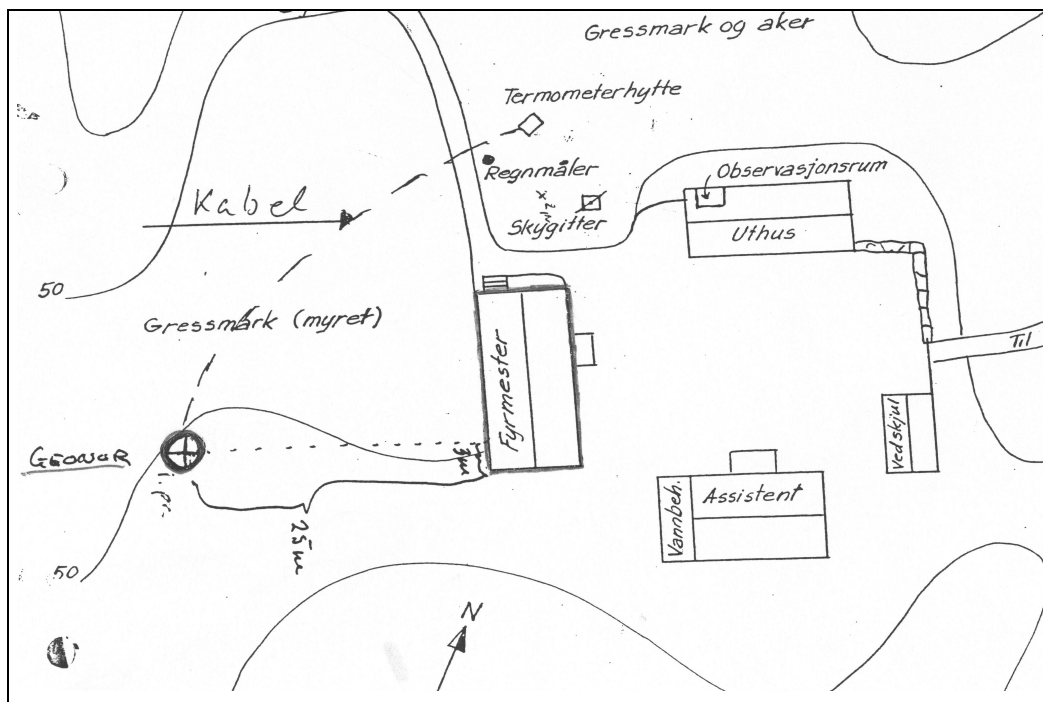 Gressmark og aker
Termometerhytte
Regnmåler
Observasjonsrum
Kabel
Skygitter
Uthus
50
Gressmark (myret)
Fyrmester
Til
Vedskjul
GEONOR
3m
Assistent
Vannbeh.
25m
50
N